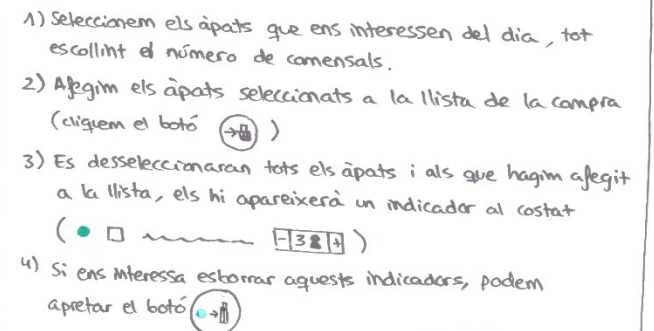 1) Seleccionem els àpats que ens interessen del dia, tot
escollint el número de comensals.
2) Afegim els àpats seleccionats a la llista de la compra
(cliquem el botó )
3) Es desseleccionaran tots els àpats i als que hagim afegit
a la llista, els hi apareixerà un indicador al costat
( - 3 + )
4) Si ens interessa esborrar aquests indicadors, podem
apretar el botó